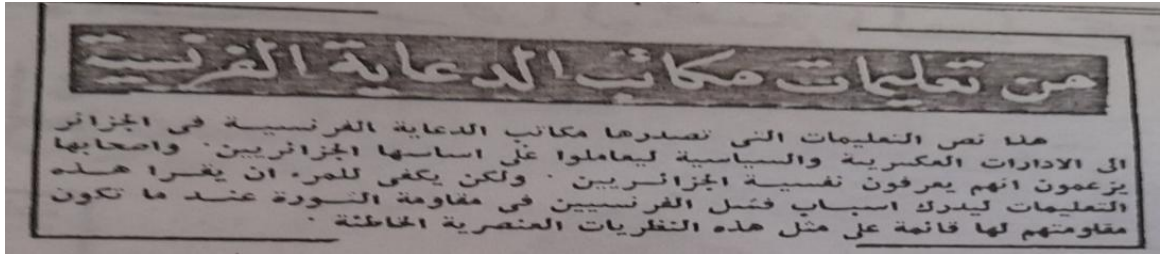 من تعليمات مكاتب الدعاية الفرنسية
هذا نص التعليمات التى تصدرها مكاتب الدعاية الفرنسية فى الجزائر
الى الادارات العكسرية والسياسية ليعاملوا على اساسها الجزائريين . واصحابها
يزعمون انهم يعرفون نفسية الجزائريين . ولكن يكفى للمرء ان يقرا هذه
التعليمات ليدرك اسباب فشل الفرنسيين فى مقاومة الثورة عند ما تكون
مقاومتهم لها قائمة على مثل هذه النظريات العنصرية الخاطئة .